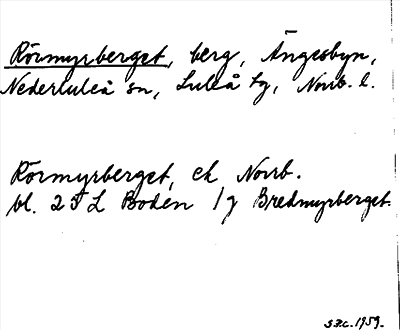 Rörmyrberget, berg, Ängesbyn,
Nederluleå sn, Luleå tg, Norrb. l.
Rörmyrberget, ek Norrb.
bl. 25 L Boden /g Bredmyrberget.
S.F.C. 1959.